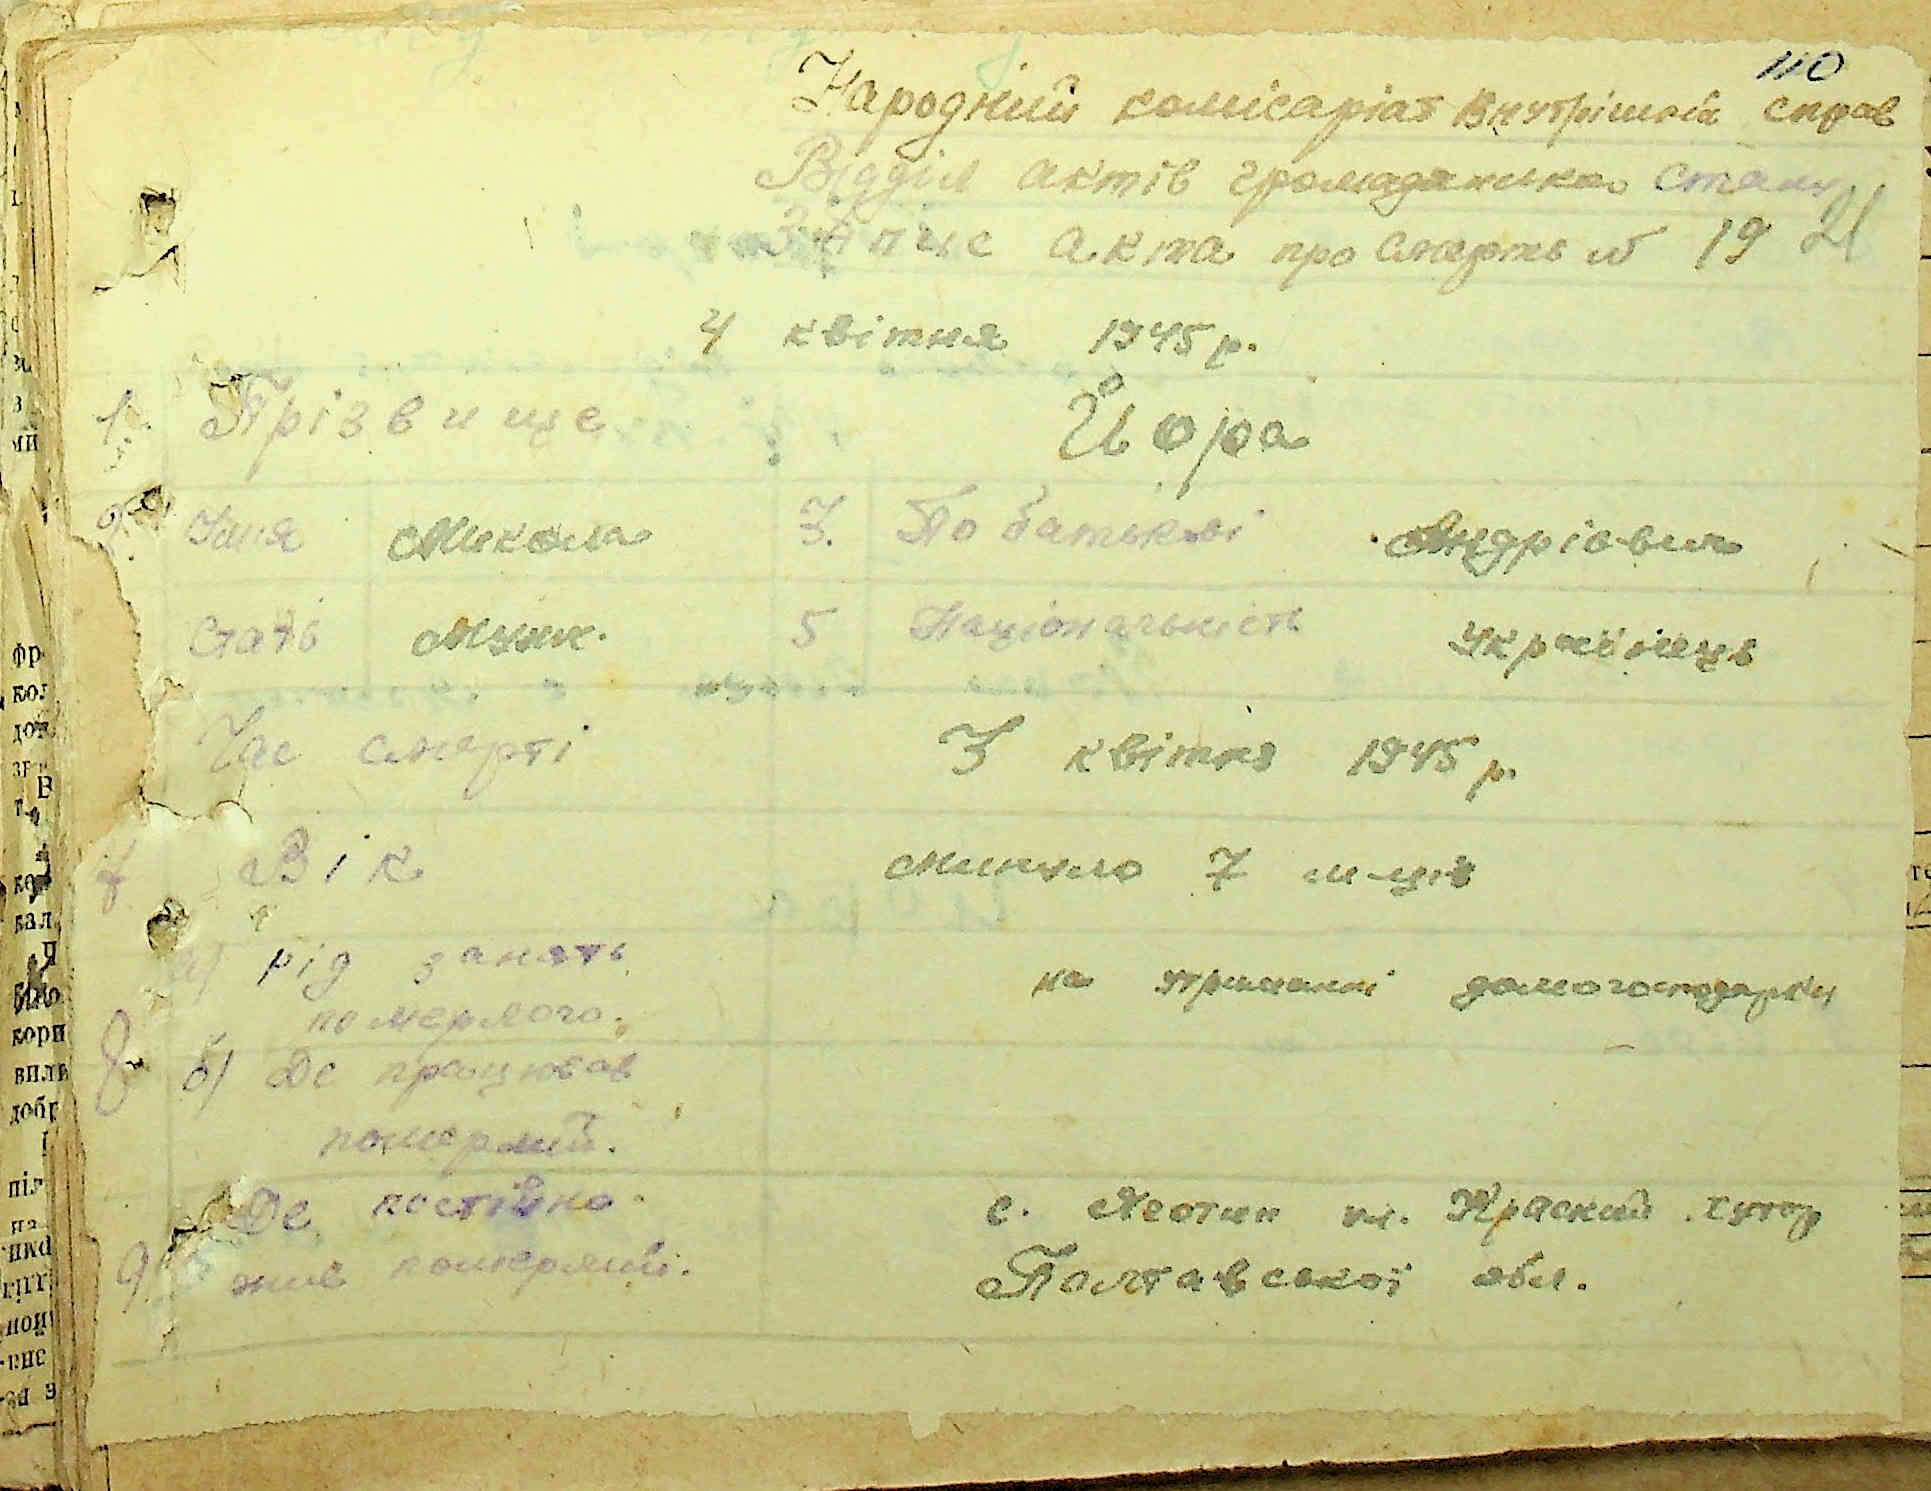 110
Народний комісаріат Внутрішніх справ
Відділ актів громадянська стану
Запис акта про смерть № 19 21
4 квітня 1945 р.
1. Прізвище Йора
2. Імя Микола 3. По батькові Андріович
Стать Муж. 5 Національність Українець
Час смерті 3 квітня 1945 р.
7 Вік минуло 7 м-ців
а) рід занять на утриманні домогосподарки
померлого.
8 б) Де працював
померлий.
Де постійно с. Хутор
9 жив померлий. Полтавської обл.